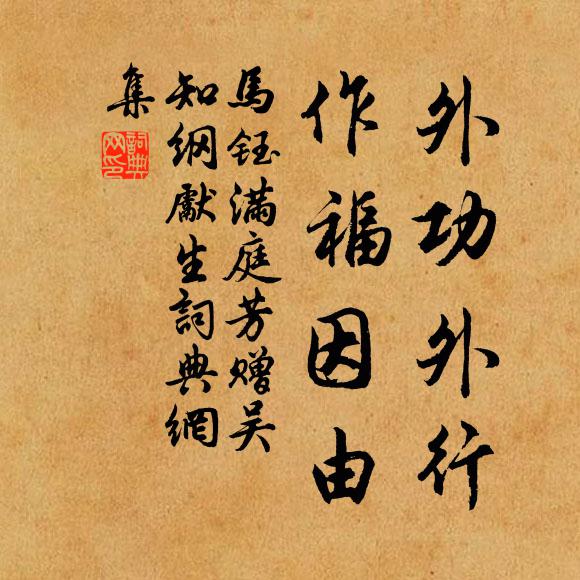 外功外行
作福因由
馬鈺滿庭芳贈吳
知綱獻生詞典網
集
詞典網印